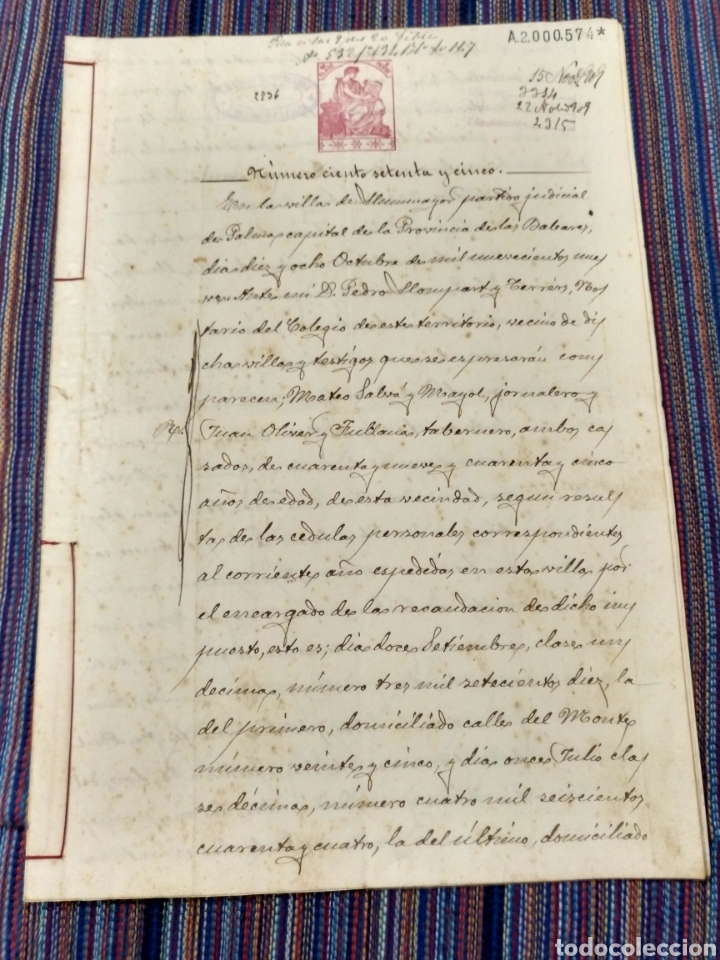 A.2.000.574*
532 1º 131
2236
15 Nov 909
2314
22 Nov 909
2315
Número ciento setenta y cinco.
En la villa de Llummayor partido judicial
de Palma capital de la Provincia de las Baleares,
dia diez y ocho Octubre de mil nuevecientos nue
ve: Ante mi D. Pedro Llompart y Terrérs, No
tario del Colegio de este territorio, vecino de di
cha villa y testigos que se espresarán com
parecen; Mateo Salvá y Mayol, jornalero y
Juan Oliver y Tublana, tabernero, ambos ca
sados, de cuarenta y nueve y cuarenta y cinco
años de edad, de esta vecindad, segun resul
ta de las cedulas personales correspondientes
al corriente año espedidas en esta villa por
el encargado de la recaudacion de dicho im
puesto, esto es; dia doce Setiembre, clase un
decima, número tres mil setecientos diez, la
del primero, domiciliado calle del Monte
número veinte y cinco, y dia once Julio cla
se décima, número cuatro mil seiscientos
cuarenta y cuatro, la del último, domiciliado
todocoleccion.net